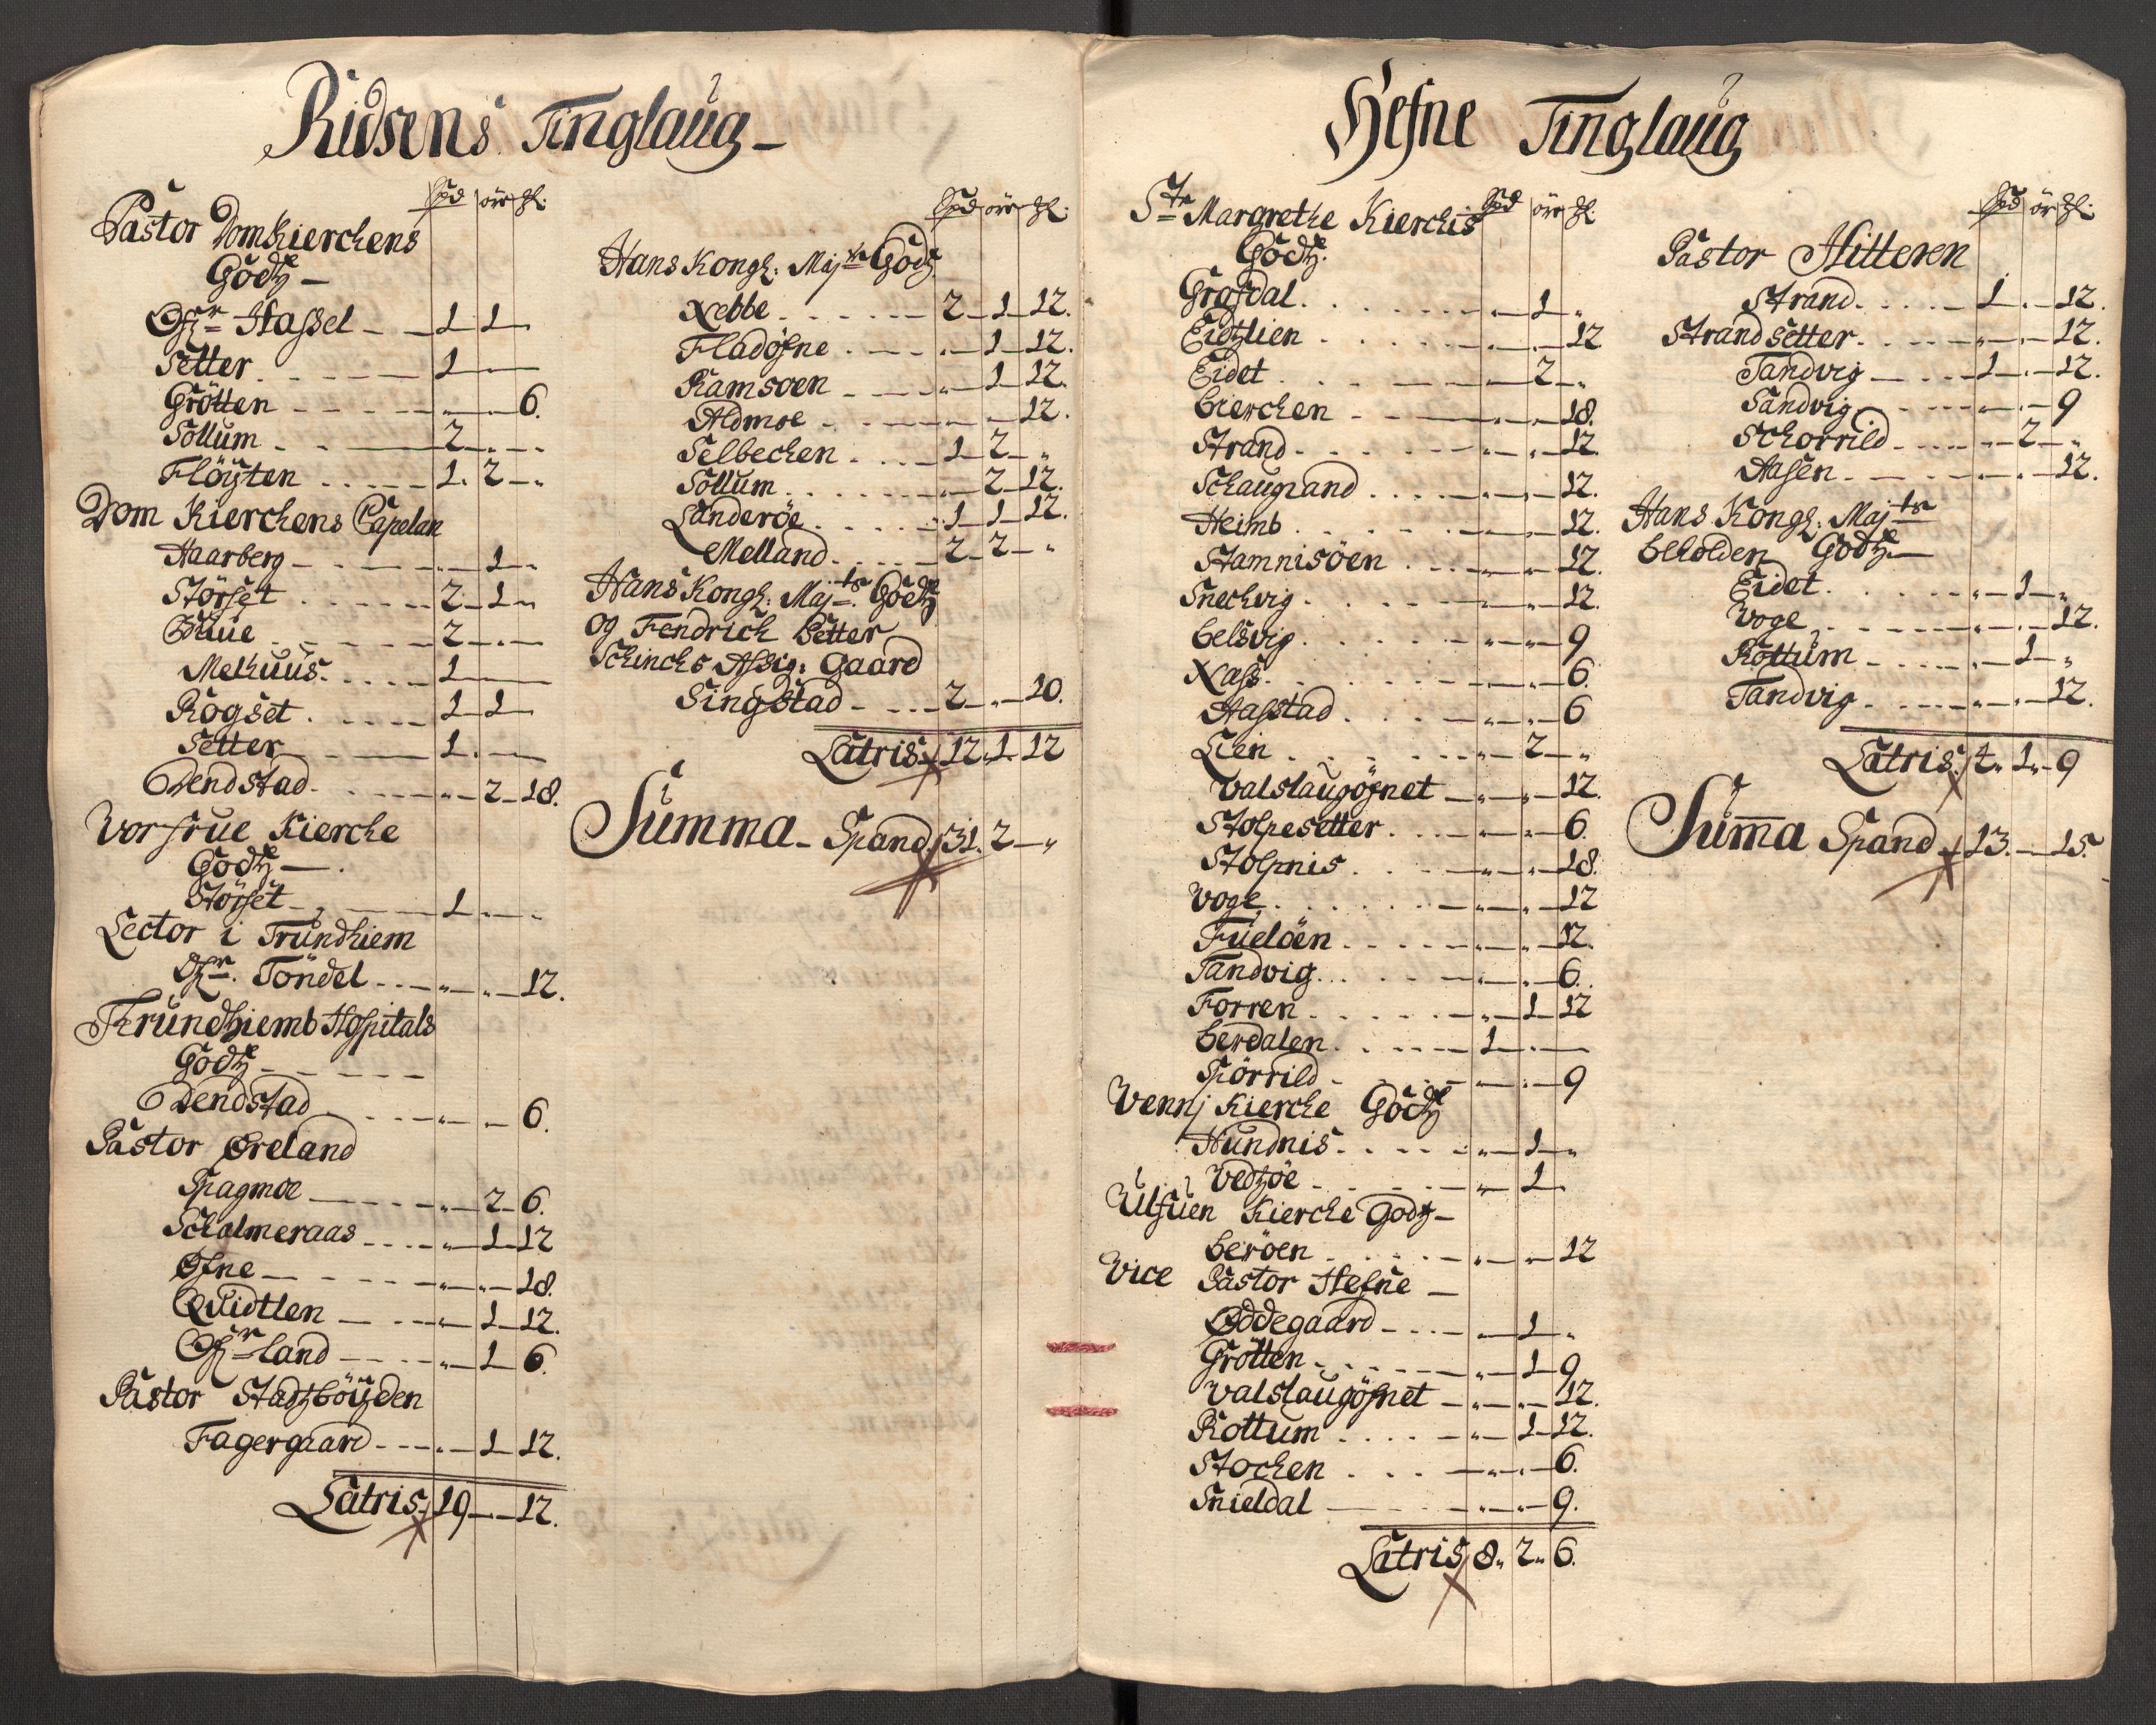 Ridsens Tinglaug
Spd ør Ms:
Pastor Domkierchens
Godtz
Øfr Hassel 1 1
Setter 1
Grötten 6.
Sollum 2
Flöyten 1. 2
Dom Kierchens Capelan
Haarberg 1
Störset 2 1
Schiue 2
Melhuus 1
Rogset 1 1
Setter 1
Dendstad 2 18.
Vorfrue Kierche
Godtz
Störset 1
Lector i Trundhiem
Øfr. Töndel 12.
Trundhiemb Hospitals
Godtz
Dendstad 6.
Pastor Øreland
Spagmoe 2 6.
Schalmeraas 1 12
Øfne 18.
Quidtlen 1 12.
Øfr land 1 6.
Pastor Stadtzböyden
Fagergaard 1 12.
Latris 19 12.
Hans Kongl: Majts Godtz
Nebbe 2 1 12.
Fladöfne 1 12.
Ramsoen 1 12.
Aldmoe 12.
Selbechen 1 2
Sollum 2 12.
Landeröe 1 1 12.
Melland 2 2
Hans Kongl: Majts Godtz
og Fendrich Petter
Schinchs Assig: Gaard
Singstad 2 10.
Latris 12. 1. 12
Summa Spand 31. 2
Hefne Tinglaug
St Margrethe Kierchis Spd ør Ms
Godtz.
Grafdal 1
Eidtzlien 12
Eidet 2
Bierchen 18.
Strand 12.
Schaugrand 12.
Heimb 12.
Stamnisöen 12.
Snechvig 12.
Belsvig 9
Nass 6.
Hasstad 6
Lien 2
Valslaugöfnet 12.
Stolpesetter 6.
Stolpnis 18.
Voge 12
Fueløen 12.
Tandvig 6.
Forren 1 12
Berdalen 1
Spörrild 9
Vennj Kierche Godtz
Hundnis 1
Vedtzöe 1
Ulfuen Kierche Godtz
Beröen 12
Vice Pastor Hefne
Øddegaard 1
Grötten 1 9
Valslaugöfnet 12.
Rottum 1 12.
Stochen 6.
Snieldal 9.
Latris 8. 2. 6.
Spd ør Ms:
Pastor Hitteren
Strand 1. 12.
Strandsetter 12.
Tandvig 1 12.
Sandvig 9
Schorrild 2
Aasen 12.
Hans Kongl: Majts
beholden Godtz
Eidet 1
Voge 12.
Rottum 1
Tandvig 12.
Latris 4. 1. 9
Summa Spand 13. 15.